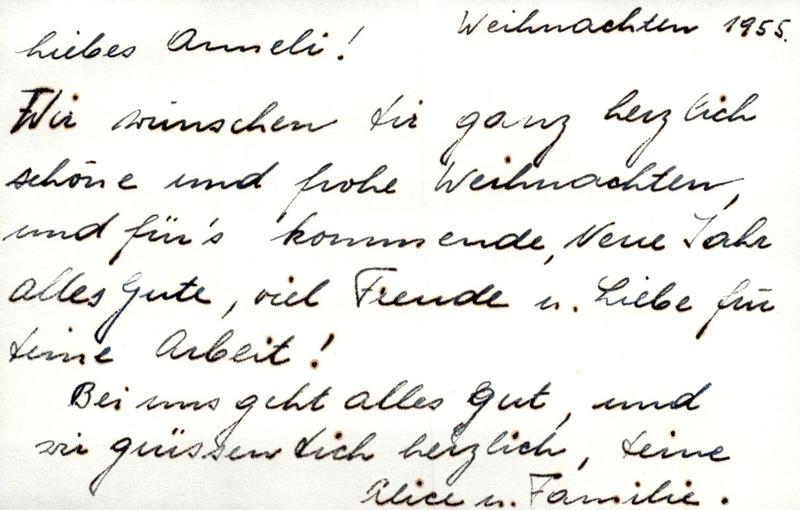 Weihnachten 1955.
Liebes Anneli!
Wir wünschen dir ganz herzlich
schöne und frohe Weihnachten,
und für's kommende, Neue Jahr
alles Gute, viel Freude u. Liebe für
deine Arbeit!
Bei uns geht alles Gut, und
wir grüssen dich herzlich, deine
Alice u. Familie.